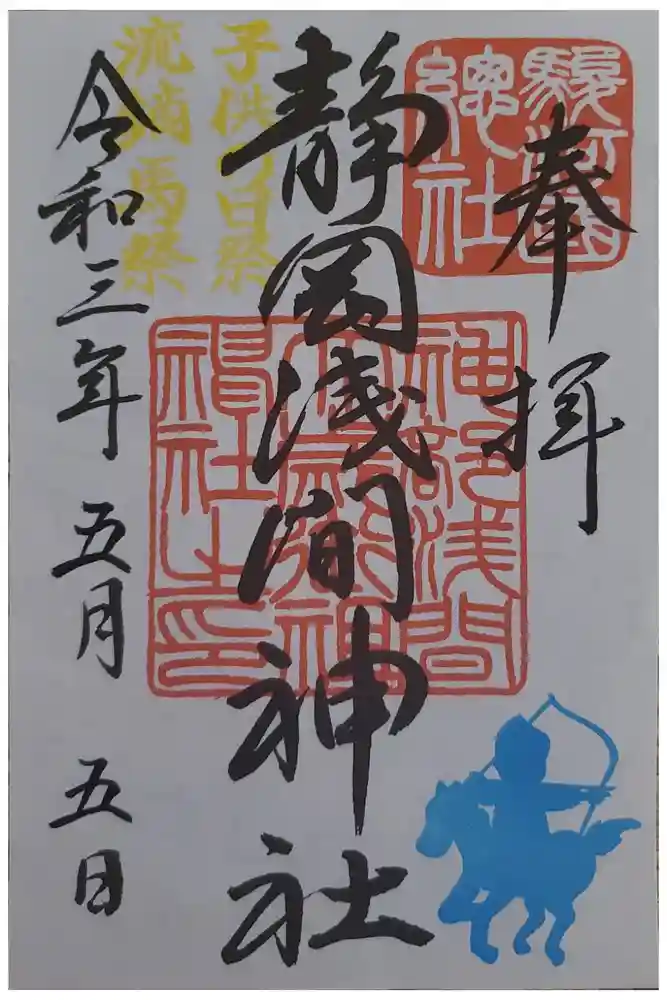 奉拝
駿河國
總社
静岡浅間神社
神部浅間
大歳御祖
神社之印
子供の日祭
流鏑馬祭
令和三年 五月 五日